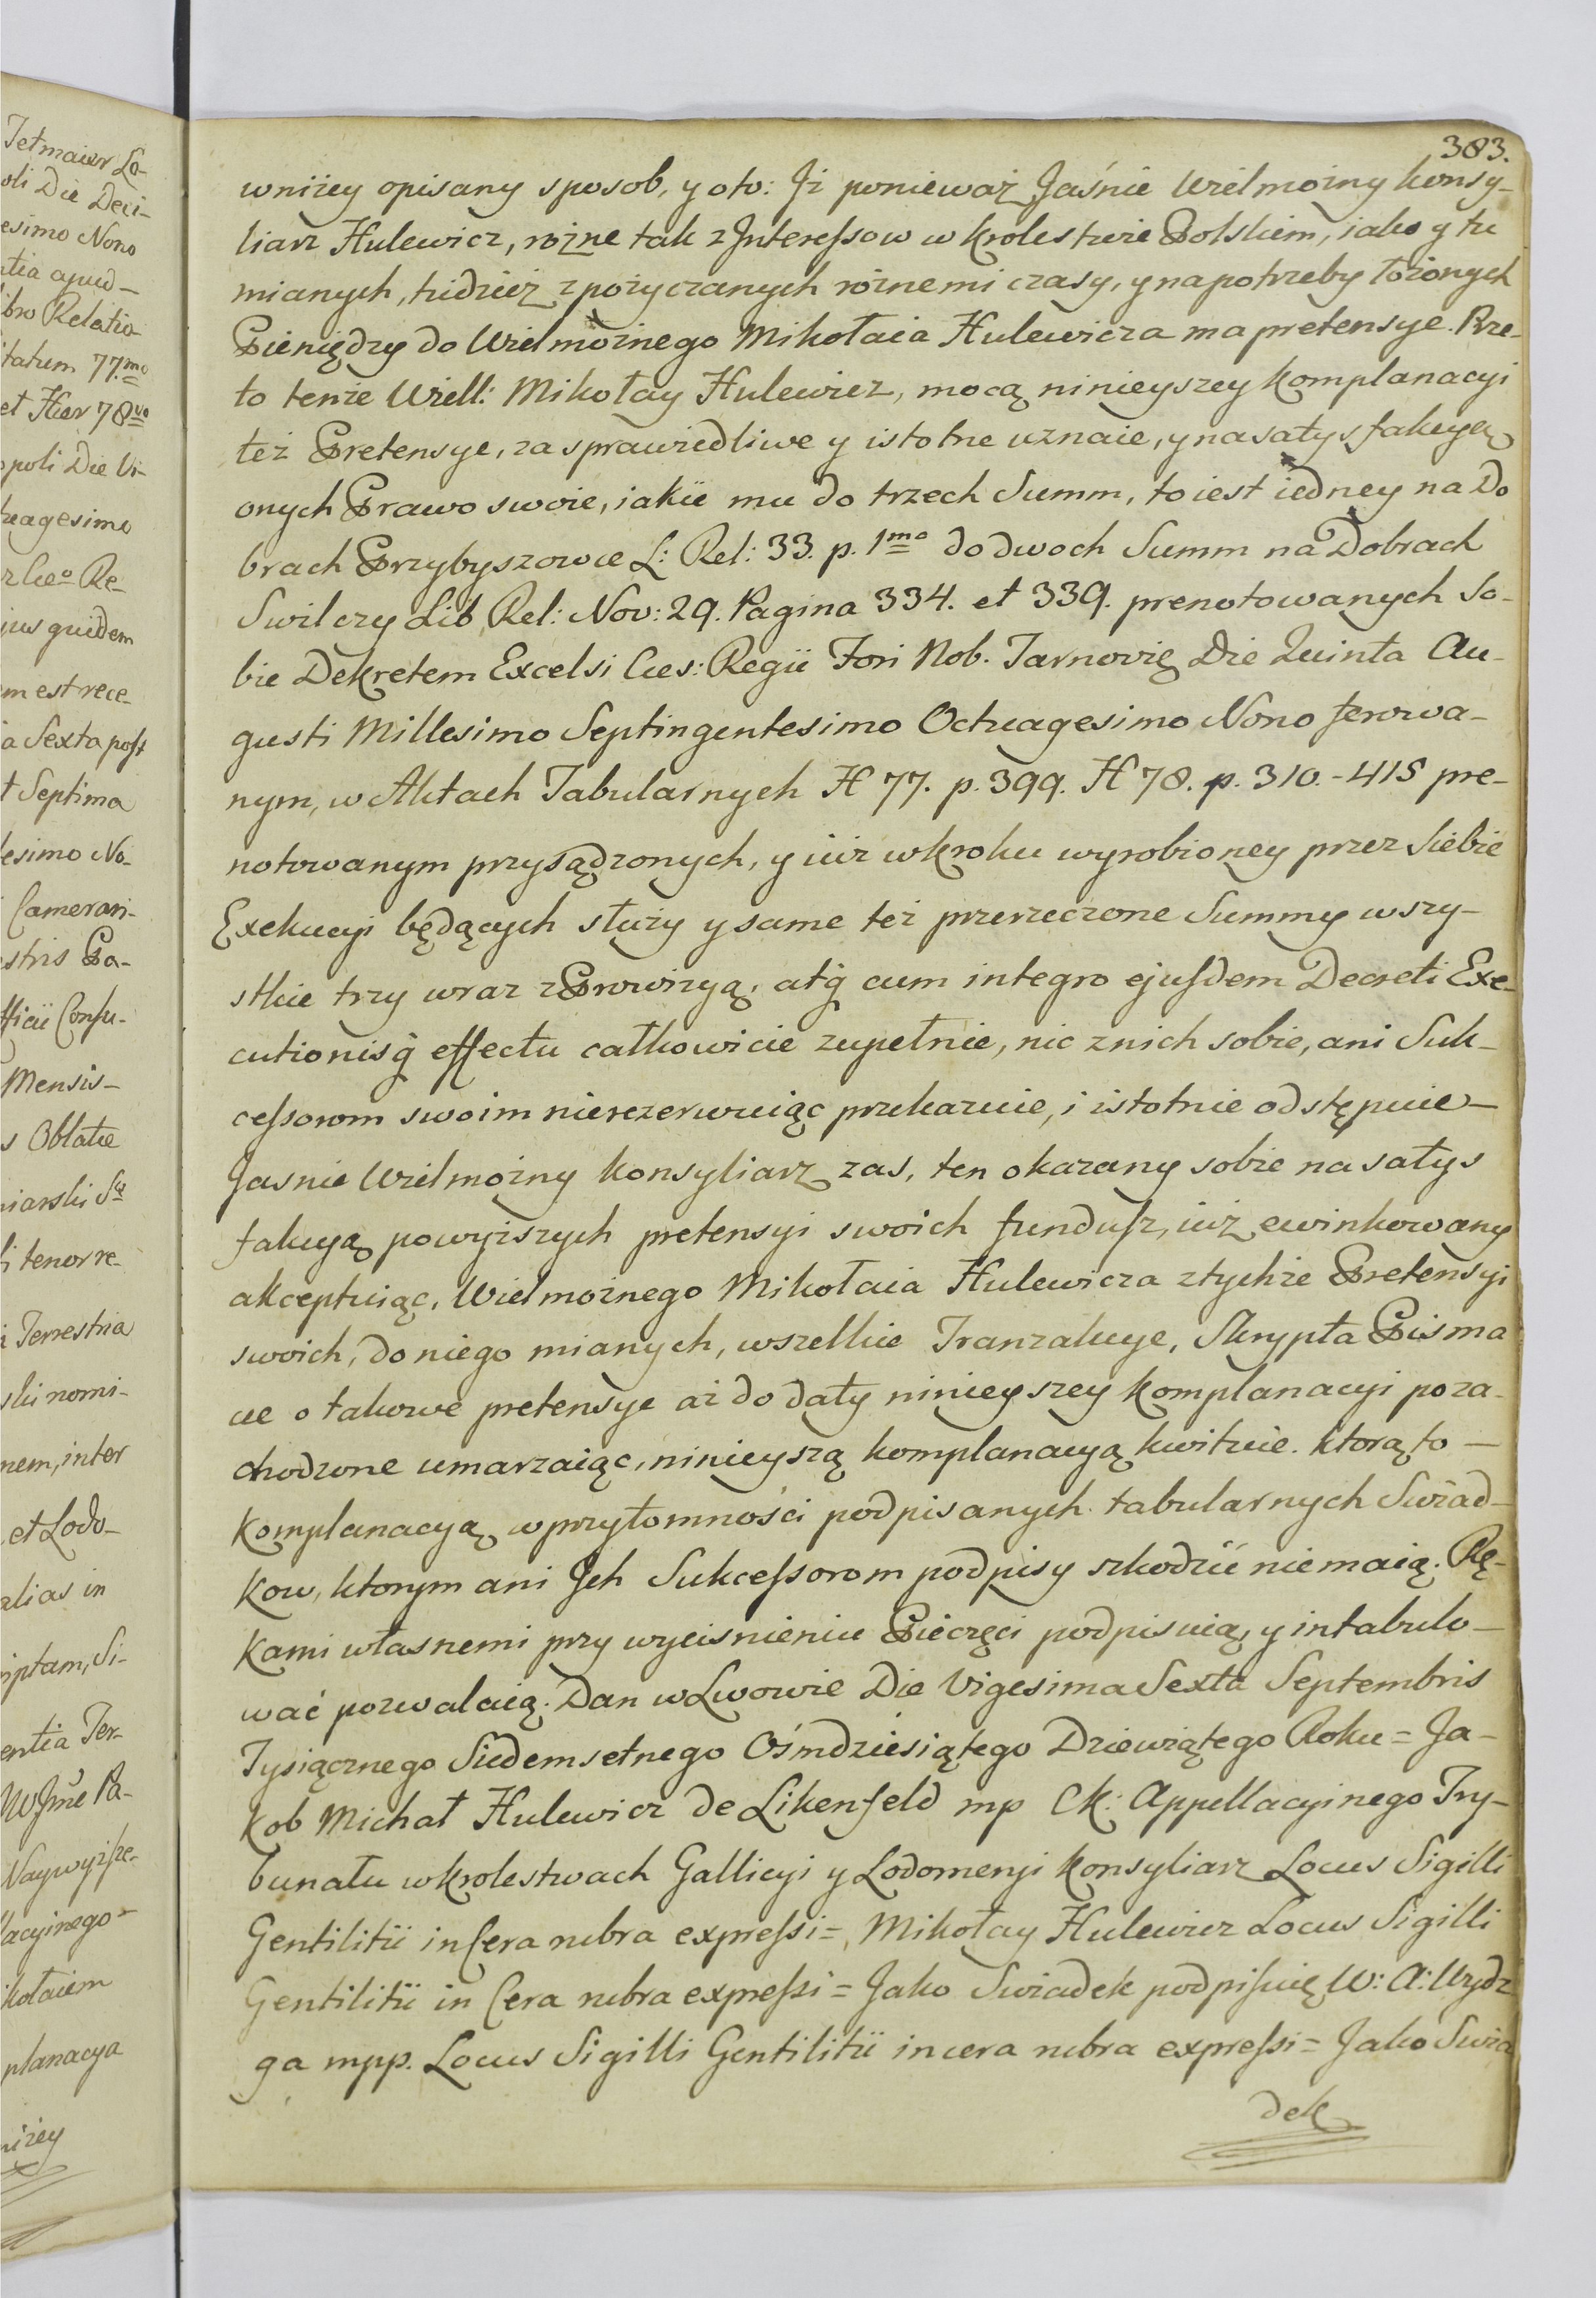 383.
wniżey opisany sposob, y oto: Jż ponieważ Jaśnie Wielmożny Konsy-
liarz Hulewicz, rożne tak z Interessow w Krolestwie Polskiem, iako y tu
mianych, tudzież z pożyczanych rożnemi czasy, y na potrzeby łożonych
Pieniędzy do Wielmożnego Mikołaia Hulewicza ma pretensye. Prze-
to tenże Wiell: Mikołay Hulewicz, mocą ninieyszey Komplanacyi
też Pretensye, za sprawiedliwe y istotne uznaie, y na satysfakcyą
onych Prawo swoie, iakie mu do trzech Summ, to iest iedney na Do
brach Przybyszowce L: Rel: 33. p. 1mo do dwoch Summ na Dobrach
Swilczy Lib Rel: Nov: 29. Pagina 334. et 339. prenotowanych so-
bie Dekretem Excelsi Cæs: Regii Fori Nob. Tarnovię Die Quinta Au-
gusti Millesimo Septingentesimo Octuagesimo Nono ferowa-
nym, w Aktach Tabularnych H 77. p. 399. H 78. p. 310.-415 pre-
notowanym przysądzonych, y iuż w kroku wyrobioney przez siebie
Exekucyi będących służy y same też przerzeczone Summy wszy-
stkie trzy wraz z Prowizyą, atq cum integro ejusdem Decreti Exe-
cutionisq effectu całkowicie zupełnie, nic z nich sobie, ani Suk-
cessorom swoim nierezerwuiąc przekazuie, i istotnie odstępuie-
Jasnie Wielmożny Konsyliarz zas, ten okazany sobie na satys
fakcyą powyższych pretensyi swoich fundusz, iuż ewinkowany
akceptuiąc, Wielmożnego Mikołaia Hulewicza z tychże Pretensyi
swoich, do niego mianych, wszelkie Tranzakcye, Skrypta Pisma
we o takowe pretensye aż do daty ninieyszey Komplanacyi poza-
chodzone umarzaiąc, ninieyszą komplanacyą kwituie. Ktorą to -
Komplanacyą w przytomności podpisanych tabularnych Swiad-
kow, ktorym ani Jch Sukcessorom podpisy szkodzić niemaią. Rę-
kami własnemi przy wycisnieniu Pieczęci podpisuią, y intabulo-
wać pozwalaią. Dan w Lwowie Die Vigesima Sexta Septembris
Tysiącznego Siedemsetnego Ośmdziesiątego Dziewiątego Roku = Ja-
kob Michał Hulewicz de Likenfeld mp CK: Appellacyinego Try-
bunału w Krolestwach Gallicyi y Lodomeryi Konsyliarz Locus Sigilli
Gentilitii in Cera rubra expressi = Mikołay Hulewicz Locus Sigilli
Gentilitii in Cera rubra expressi = Jako Swiadek podpisuię W: A: Wydz
ga mpp. Locus Sigilli Gentilitii in cera rubra expressi = Jako Swia
dek